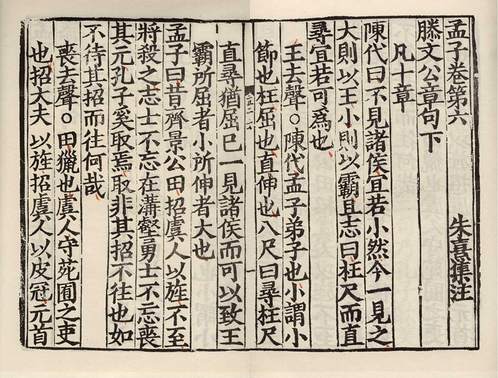 孟子卷第六
滕文公章句下　朱熹集注
凡十章
陳代曰不見諸侯宜若小然今一見之
大則以王小則以霸且志曰枉尺而直
尋宜若可爲也
王去聲○陳代孟子弟子也小謂小
節也枉屈也直伸也八尺曰尋枉尺
直尋猶屈己一見諸侯而可以致王
霸所屈者小所伸者大也
孟子曰昔齊景公田招虞人以旌不至
將殺之志士不忘在溝壑勇士不忘喪
其元孔子奚取焉取非其招不往也如
不待其招而往何哉
喪去聲○田獵也虞人守苑囿之吏
也招大夫以旌招虞人以皮冠元首